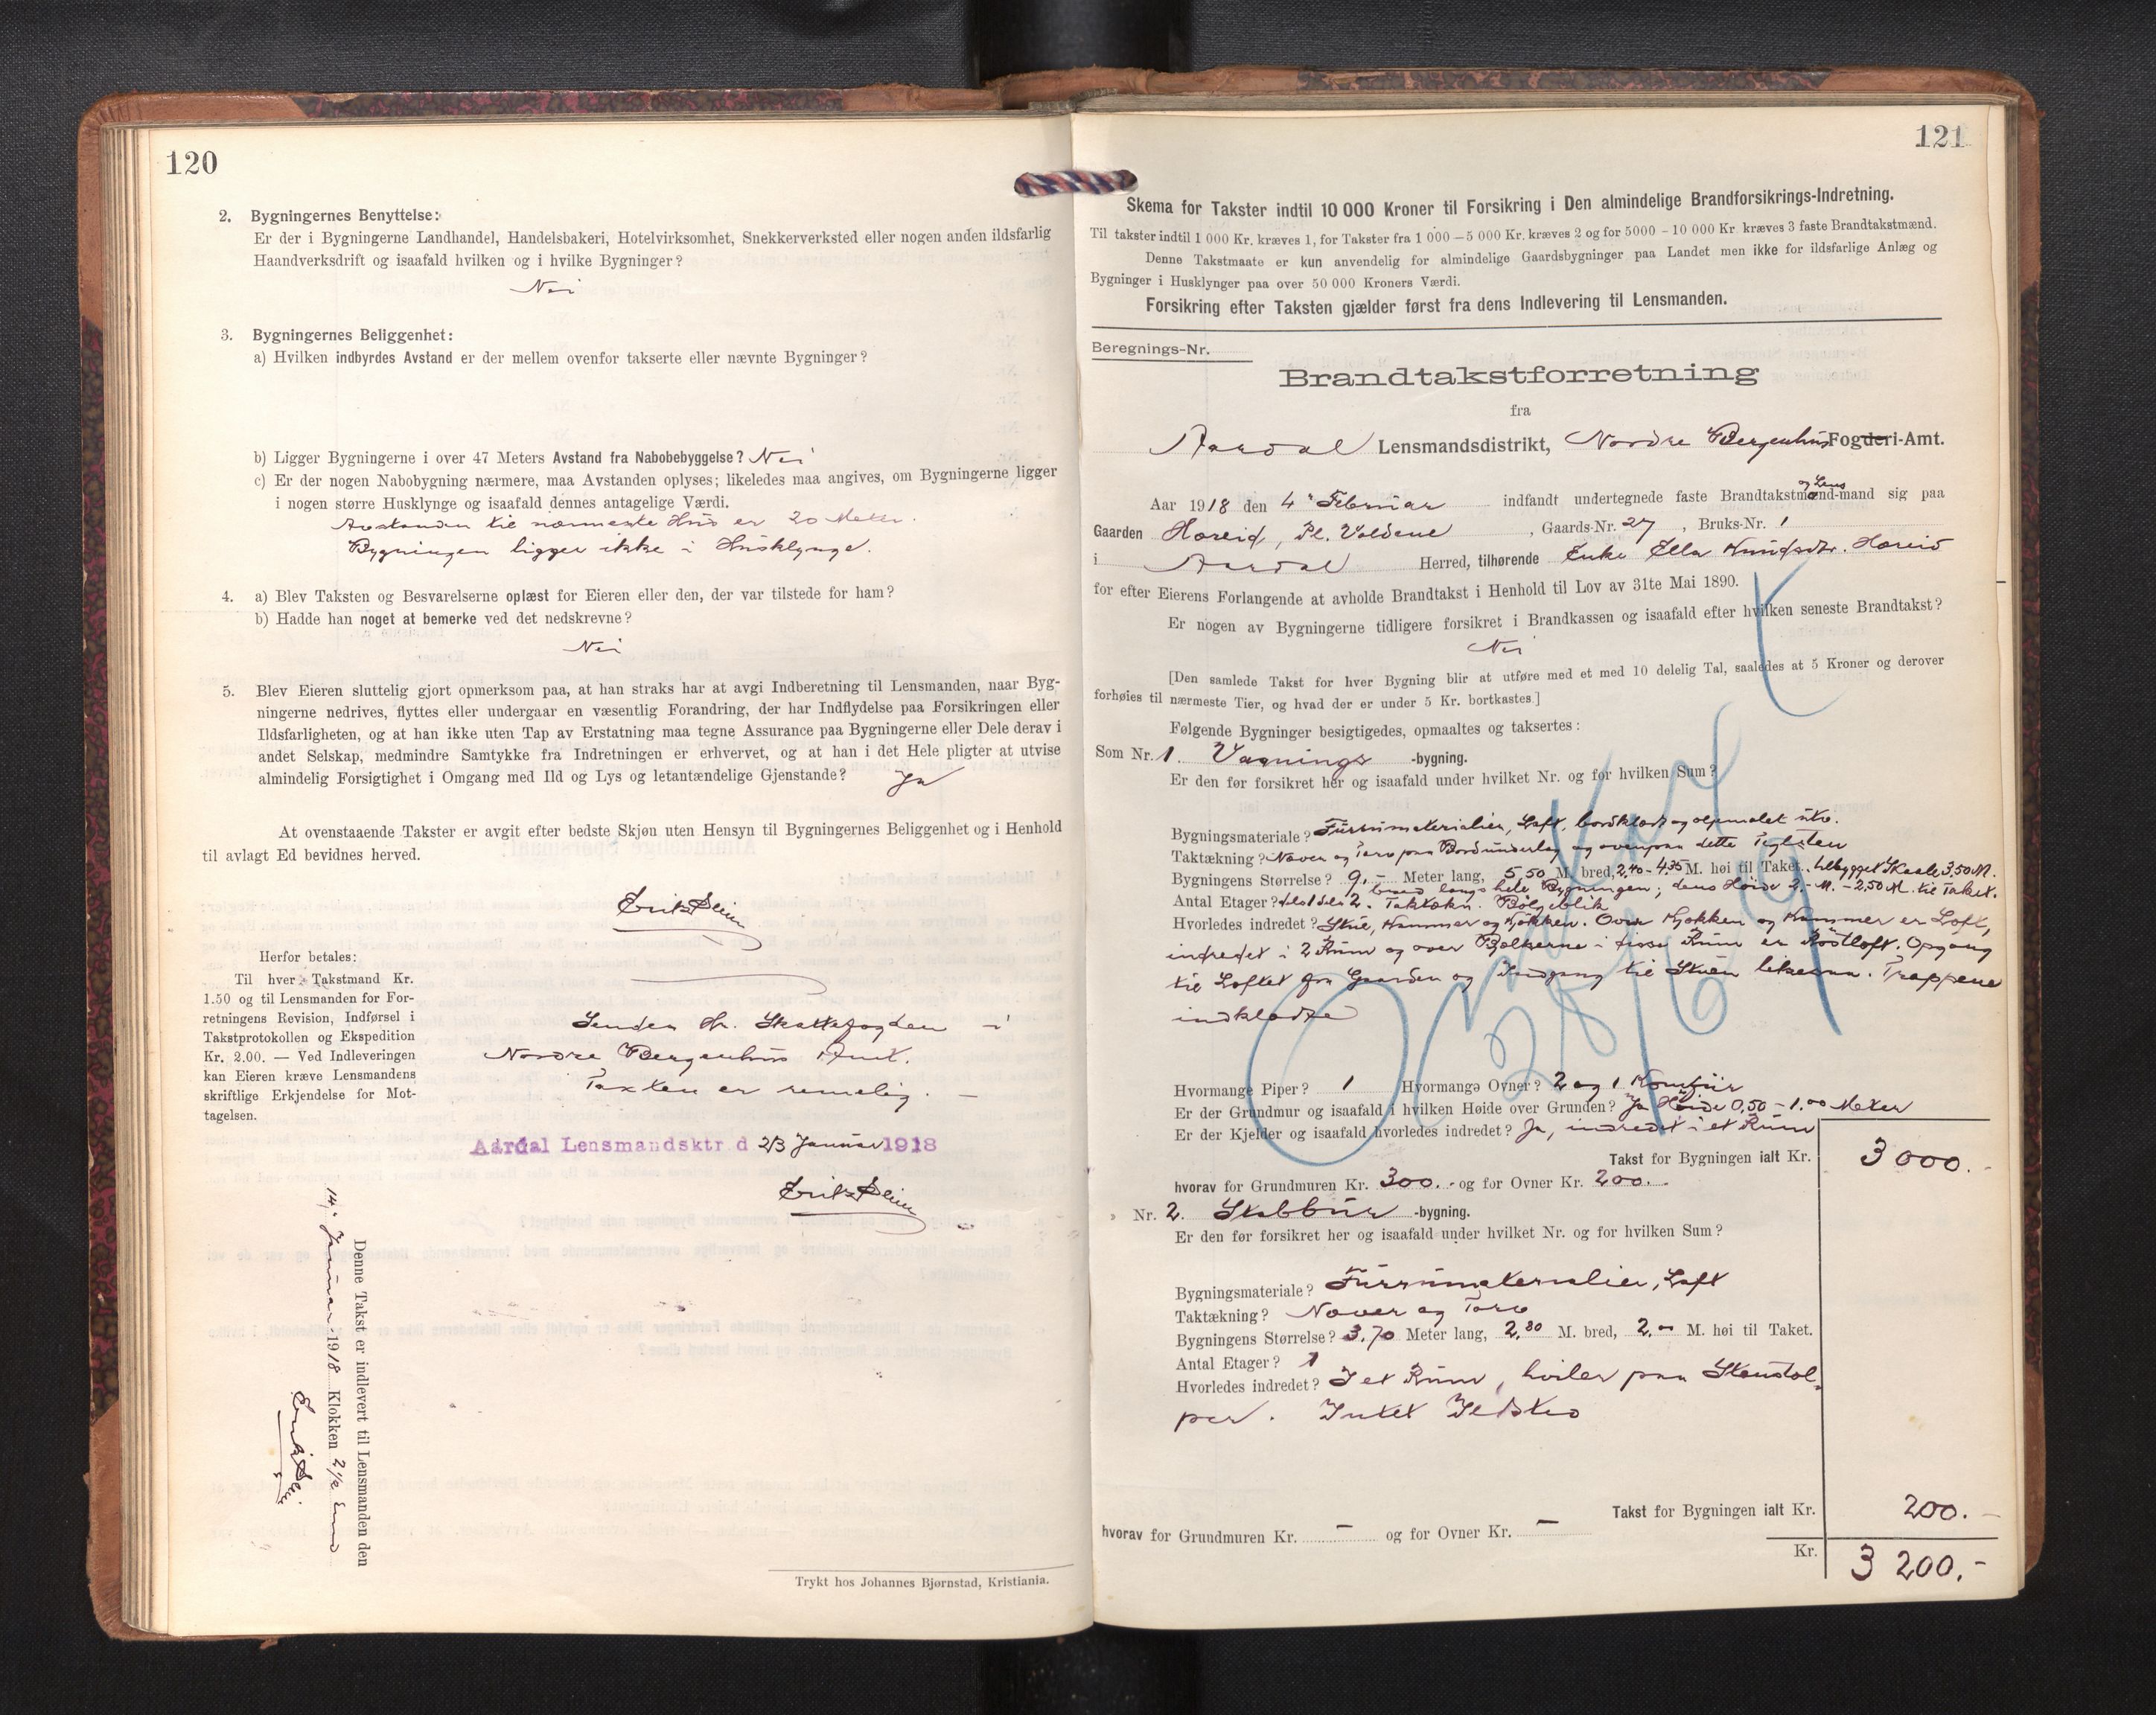 120
2. Bygningernes Benyttelse:
Er der i Bygningerne Landhandel, Handelsbakeri, Hotelvirksomhet, Snekkerverksted eller nogen anden ildsfarlig
Haandverksdrift og isaafald hvilken og i hvilke Bygninger?
Nei
3. Bygningernes Beliggenhet:
a) Hvilken indbyrdes Avstand er der mellem ovenfor takserte eller nævnte Bygninger?
b) Ligger Bygningerne i over 47 Meters Avstand fra Nabobebyggelse? Nei
c) Er der nogen Nabobygning nærmere, maa Avstanden oplyses; likeledes maa angives, om Bygningerne ligger
i nogen større Husklynge og isaafald dennes antagelige Værdi.
Avstanden til nærmeste Hus er 20 Meter.
Bygningen ligger ikke i Husklynge.
4. a) Blev Taksten og Besvarelserne oplæst for Eieren eller den, der var tilstede for ham?
b) Hadde han noget at bemerke ved det nedskrevne?
Nei
5. Blev Eieren sluttelig gjort opmerksom paa, at han straks har at avgi Indberetning til Lensmanden, naar Byg-
ningerne nedrives, flyttes eller undergaar en væsentlig Forandring, der har Indflydelse paa Forsikringen eller
Ildsfarligheten, og at han ikke uten Tap av Erstatning maa tegne Assurance paa Bygningerne eller Dele derav i
andet Selskap, medmindre Samtykke fra Indretningen er erhvervet, og at han i det Hele pligter at utvise
almindelig Forsigtighet i Omgang med Ild og Lys og letantændelige Gjenstande? Ja
At ovenstaaende Takster er avgit efter bedste Skjøn uten Hensyn til Bygningernes Beliggenhet og i Henhold
til avlagt Ed bevidnes herved.
Erik
Herfor betales:
Til hver Takstmand Kr.
1.50 og til Lensmanden for For-
retningens Revision, Indførsel i
Takstprotokollen og Ekspedition
Kr. 2.00. — Ved Indleveringen
kan Eieren kræve Lensmandens
skriftlige Erkjendelse for Mot-
tagelsen.
Sendes Hr. Skattefogden i
Nordre Bergenhus Amt.
Taxten er remelig. —
Aardal Lensmandsktr. d 2/3 Januar 1918
Erik
Denne Takst er indlevert til Lensmanden den
14. Januar 1918 Klokken 2 1/2 Em
Erik
Trykt hos Johannes Bjørnstad, Kristiania.
121
Skema for Takster indtil 10 000 Kroner til Forsikring i Den almindelige Brandforsikrings-Indretning.
Til takster indtil 1 000 Kr. kræves 1, for Takster fra 1 000 — 5 000 Kr. kræves 2 og for 5000 - 10 000 Kr. kræves 3 faste Brandtakstmænd.
Denne Takstmaate er kun anvendelig for almindelige Gaardsbygninger paa Landet men ikke for ildsfarlige Anlæg og
Bygninger i Husklynger paa over 50 000 Kroners Værdi.
Forsikring efter Taksten gjælder først fra dens Indlevering til Lensmanden.
Beregnings-Nr.
Brandtakstforretning
fra
Aardal Lensmandsdistrikt, Nordre Bergenhus Fogderi-Amt.
Aar 1918 den 4 Februar indfandt undertegnede faste Brandtakstmænd og Lens-mand sig paa
Gaarden Hæreid, Pl. Voldene, Gaards-Nr. 27, Bruks-Nr. 1
i Aardal Herred, tilhørende Enke Ella Knudsdtr. Hæreid
for efter Eierens Forlangende at avholde Brandtakst i Henhold til Lov av 31te Mai 1890.
Er nogen av Bygningerne tidligere forsikret i Brandkassen og isaafald efter hvilken seneste Brandtakst?
Nei
[Den samlede Takst for hver Bygning blir at utføre med et med 10 delelig Tal, saaledes at 5 Kroner og derover
forhøies til nærmeste Tier, og hvad der er under 5 Kr. bortkastes.]
Følgende Bygninger besigtigedes, opmaaltes og taksertes:
Som Nr. 1. Vaanings -bygning.
Er den før forsikret her og isaafald under hvilket Nr. og for hvilken Sum?
Bygningsmateriale? Furrumaterialier, Laft, bordklædt og oljemalet utv.
Taktækning? Næver og Torv paa Bordunderlag og ovenpaa dette Teglsten
Bygningens Størrelse? 9,- Meter lang, 5,50 M. bred, 2,40 - 4,35 M. høi til Taket. tilbygget Skaale, 3,50 M.
bred langs hele Bygningen; dens Høide 2,- M. - 2,50 M. til Taket.
Antal Etager? dels 1 dels 2. Taktækn. Bølgeblik
Hvorledes indredet? Stue, Kammer og Kjøkken. Over Kjøkken og Kammer er Loft,
indredet i 2 Rum og over Bjelkerne i disse Rum er Röstloft. Opgang
til Loftet fra Gaarden og Indgang til Stuen likesaa. Trappene
indklædte
Omtakst
28/6 19
Hvormange Piper? 1 Hvormange Ovner? 2 og 1 Komfur
Er der Grundmur og isaafald i hvilken Høide over Grunden? Ja Høide 0,50 - 1,00 Meter
Er der Kjelder og isaafald hvorledes indredet? Ja, indredet i et Rum
Takst for Bygningen ialt Kr. 3 000.-
hvorav for Grundmuren Kr. 300.- og for Ovner Kr. 200.-
» Nr. 2. Stabbur -bygning.
Er den før forsikret her og isaafald under hvilket Nr. og for hvilken Sum?
Bygningsmateriale? Furrumaterialier, Laft
Taktækning? Næver og Torv
Bygningens Størrelse? 3,70 Meter lang, 2,80 M. bred, 2,- M. høi til Taket.
Antal Etager? 1
Hvorledes indredet? I et Rum, hviler paa Stenstol-
per. Intet Ildsted
Takst for Bygningen ialt Kr. 200.-
hvorav for Grundmuren Kr. — og for Ovner Kr. —
Kr. 3 200.-